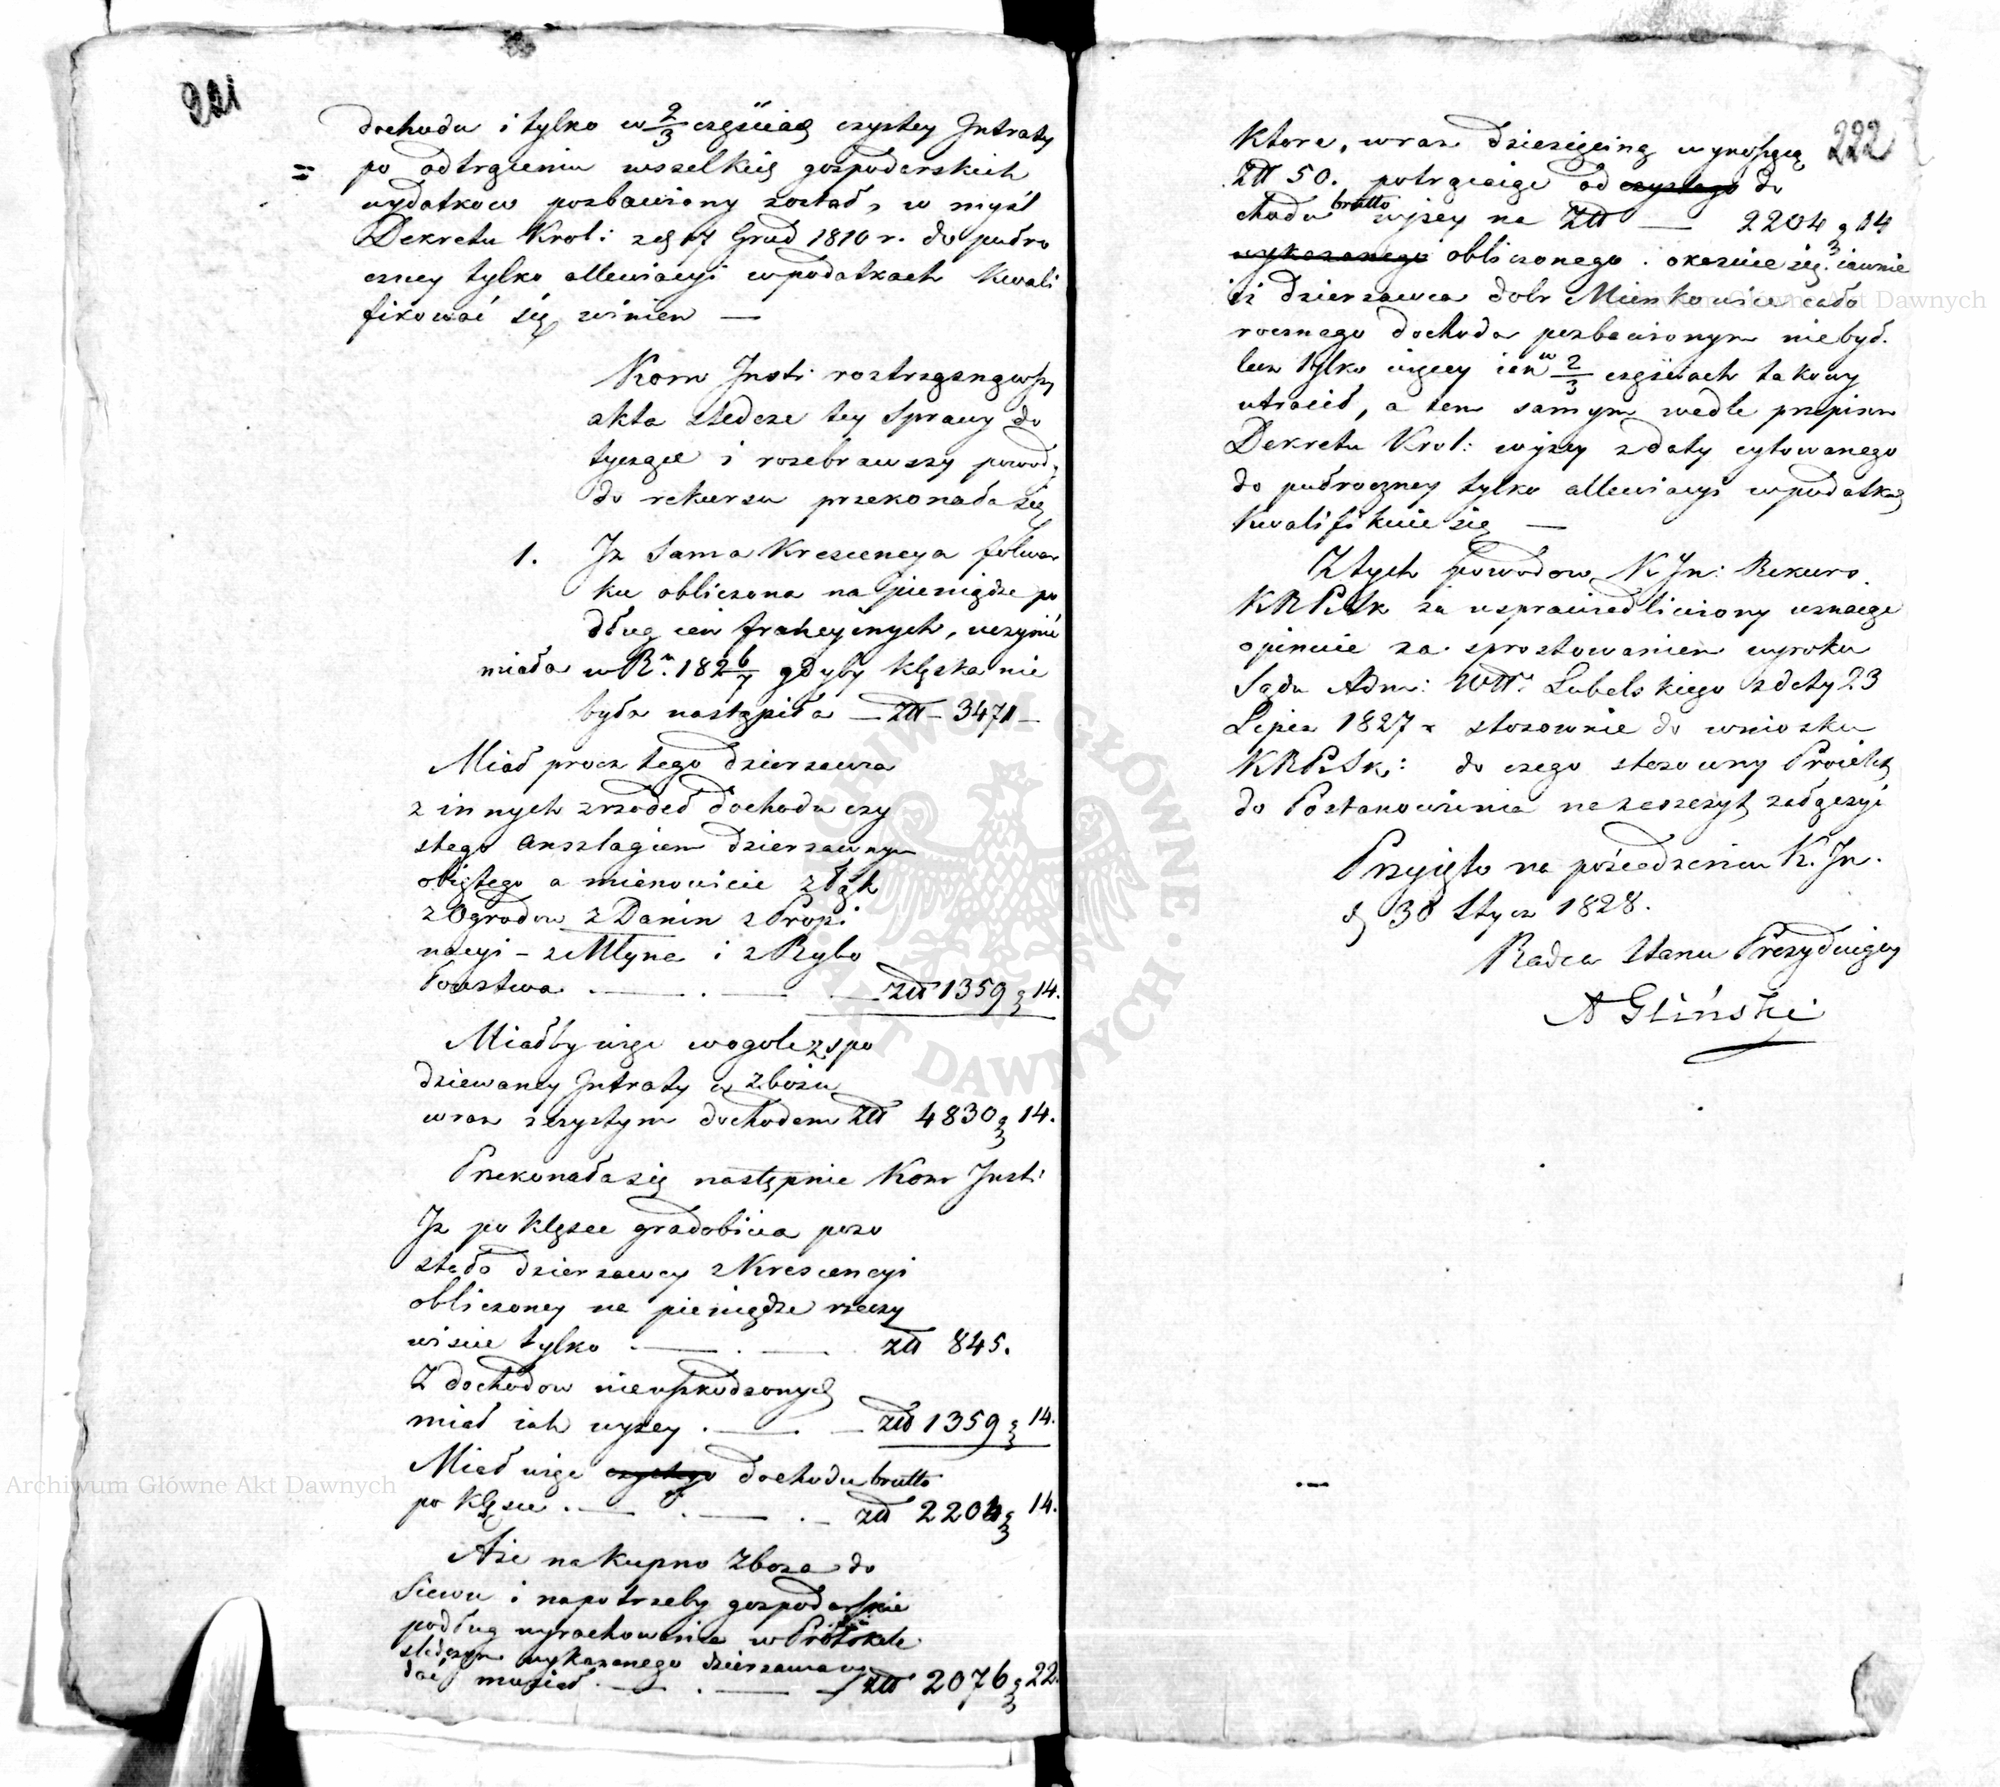 221
dochodu i tylko w 2/3 częściach czystey Jntraty
= po odtrąceniu wszelkich gospodarskich
wydatkow pozbawiony został, w myśl
Dekretu Krol: z d 17 Grud 1810 r. do pułro
czney tylko allewiacyi w podatkach Kwali
fikować się winien —
Kom Insti roztrząsnąwszy
akta śledcze tey sprawy do
tyczące i rozebrawszy powody
do rekursu przekonała się
1. Jż sama Krescencya folwar
ku obliczona na pieniądze po
dług cen frakcyinych, uczynić
miała w R. 1826/7 gdyby klęska nie
była nastąpiła — Złł — 3471 —
Miał procz tego dzierzawca
z innych zrzodeł dochodu czy
stego anszlagiem dzierzawnym
obiętego a mianowicie z łąk
z Ogrodow z Danin z Propi
nacyi – z Młyna i z Rybo
łowstwa . — . — — Złł 1359 g 14.
Miałby więc wogole z spo
dziewaney Jntraty w Zbożu
wraz z czystym dochodem Złł 4830 g 14.
Przekonała się następnie Kom Insti
Jż po klęsce gradobicia pozo
stało dzierzawcy z Krescencyi
obliczoney na pieniądze rzeczy
wiście tylko . — . — złł 845.
Z dochodow nieuszkodzonych
miał iak wyżey . — — złł 1359 g 14.
Miał więc czystego dochodu brutto
po klęsce . — . — . — złł 2204 g 14.
Aże na kupno Zboża do
siewu i na potrzeby gospodarskie
podług wyrachowania w Protokule
śledczym wykazanego dzierzawca wy
dać musiał . — . — złł 2076 g 22.
222
które, wraz dziesięciną wynoszącą
Złł 50. potrąciąc od czystego do
chodu brutto wyżey na Złł — 2204 g 14
wykazanego obliczonego . okazuie się iawnie
iż dzierzawca dobr Mienkowice cało
rocznego dochodu pozbawionym niebył.
lecz tylko więcey iak w 2/3 częściach takowy
utracił, a tem samym wedle przepisu
Dekretu Krol: wyżey z daty cytowanego
do pułroczney tylko allewiacyi w podatkach
kwalifikuie się —
Z tych powodow K Jn: Rekurs
KRPiSk za usprawiedliwiony uznaiąc
opiniuie za sprostowaniem wyroku
Sądu Adm: Wttwa Lubelskiego z daty 23
Lipca 1827 r stosownie do wniosku
KRPiSk: do czego stosowny Proiekt
do Postanowienia ma zaszczyt załączyć
Przyięto na posiedzeniu K. Jn.
d 30 Stycz 1828.
Radca Stanu Prezyduiący
A Gliński
Archiwum Główne Akt Dawnych
Archiwum Główne Akt Dawnych
ARCHIWUM GŁÓWNE AKT DAWNYCH